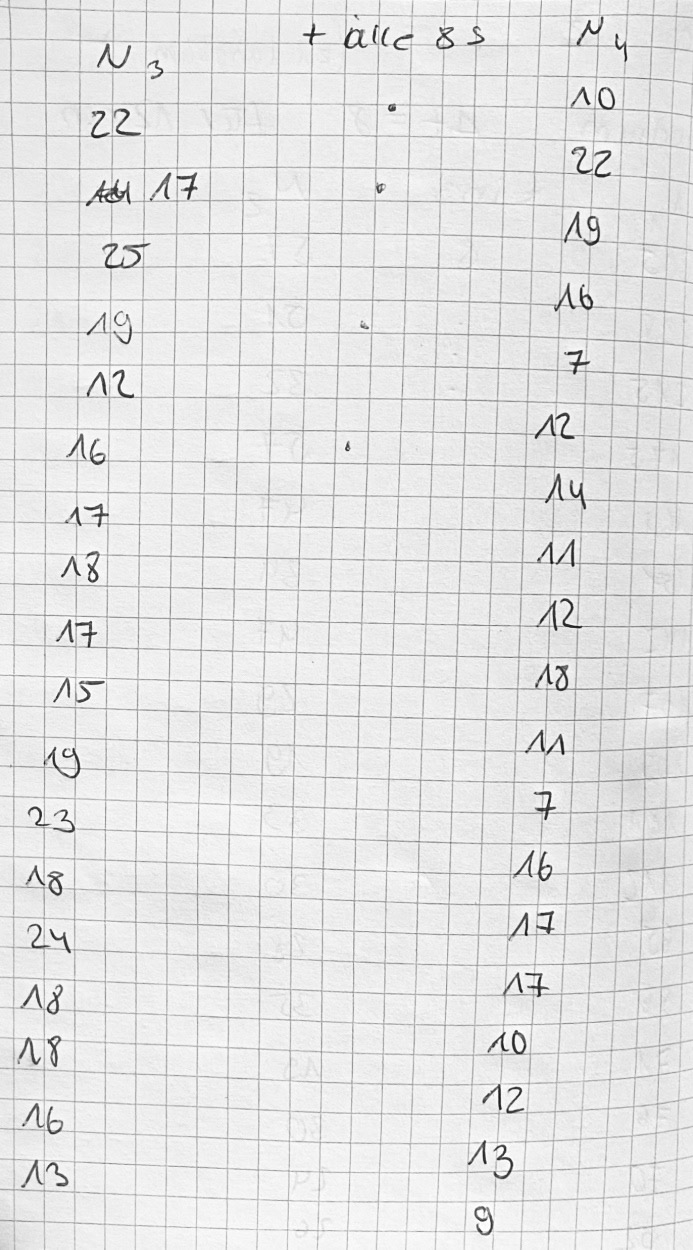 N₃
22
17
25
19
12
16
17
18
17
15
19
23
18
24
18
18
16
13
+ alle 8 s
N₄
10
22
19
16
7
12
14
11
12
18
11
7
16
17
17
10
12
13
9